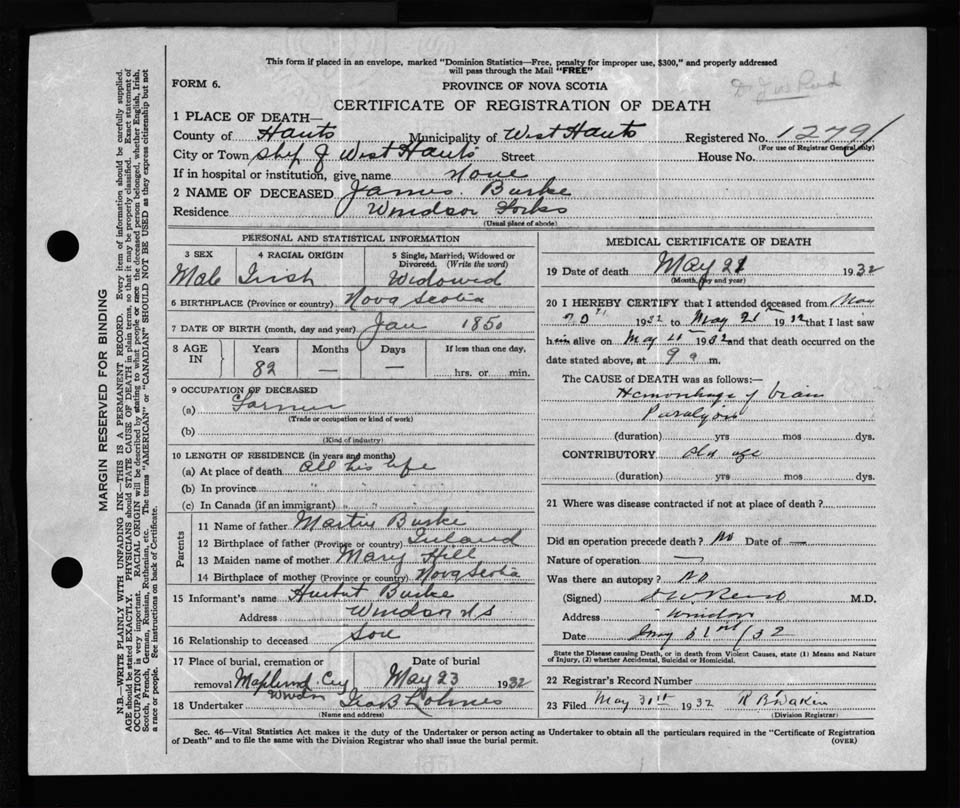 This form if placed in an envelope, marked "Dominion Statistics—Free, penalty for improper use, $300," and properly addressed
will pass through the Mail "FREE"
FORM 6.
PROVINCE OF NOVA SCOTIA
CERTIFICATE OF REGISTRATION OF DEATH
1 PLACE OF DEATH—
County of Hants Municipality of West Hants Registered No. 1279
(For use of Registrar General only)
City or Town West Hants Street House No.
If in hospital or institution, give name None
2 NAME OF DECEASED James Burke
Residence Windsor Forks
(Usual place of abode)
PERSONAL AND STATISTICAL INFORMATION
3 SEX 4 RACIAL ORIGIN 5 Single, Married, Widowed or
Divorced. (Write the word)
Male Irish Widowed
6 BIRTHPLACE (Province or country) Nova Scotia
7 DATE OF BIRTH (month, day and year) Jan 1850
8 AGE IN Years Months Days If less than one day,
82 — — hrs. or min.
9 OCCUPATION OF DECEASED
(a) Farmer
(Trade or occupation or kind of work)
(b)
(Kind of industry)
10 LENGTH OF RESIDENCE (in years and months)
(a) At place of death all his life
(b) In province " "
(c) In Canada (if an immigrant) " "
Parents
11 Name of father Martin Burke
12 Birthplace of father (Province or country) Ireland
13 Maiden name of mother Mary Hill
14 Birthplace of mother (Province or country) Nova Scotia
15 Informant's name Burke
Address Windsor NS
16 Relationship to deceased Son
17 Place of burial, cremation or Date of burial
removal Cey May 23 1932
Windsor
18 Undertaker Geo B
(Name and address)
MEDICAL CERTIFICATE OF DEATH
19 Date of death May 21 1932
(Month, day and year)
20 I HEREBY CERTIFY that I attended deceased from May
20 1932 to May 21st 1932 that I last saw
him alive on May 1932 and that death occurred on the
date stated above, at 9 a m.
The CAUSE OF DEATH was as follows:—
Hemorrhage of brain
Paralysis
(duration) yrs mos dys.
CONTRIBUTORY old age
(duration) yrs mos dys.
21 Where was disease contracted if not at place of death?
Did an operation precede death? No Date of —
Nature of operation —
Was there an autopsy? No
(Signed) M.D.
Address Windsor
Date May 32
State the Disease causing Death, or in death from Violent Causes, state (1) Means and Nature
of Injury, (2) whether Accidental, Suicidal or Homicidal.
22 Registrar's Record Number
23 Filed May 31st 1932
(Division Registrar)
Sec. 46—Vital Statistics Act makes it the duty of the Undertaker or person acting as Undertaker to obtain all the particulars required in the "Certificate of Registration
of Death" and to file the same with the Division Registrar who shall issue the burial permit. (OVER)
MARGIN RESERVED FOR BINDING
N.B.—WRITE PLAINLY WITH UNFADING INK—THIS IS A PERMANENT RECORD. Every item of information should be carefully supplied.
AGE should be stated EXACTLY. PHYSICIANS should STATE CAUSE OF DEATH in plain terms, so that it may be properly classified. Exact statement of
OCCUPATION is very important. RACIAL ORIGIN will be described by stating to what people or race the deceased person belonged, whether English, Irish,
Scotch, French, German, Russian, Ruthenian, etc. The terms "AMERICAN" or "CANADIAN" SHOULD NOT BE USED as they express citizenship but not
a race or people. See instructions on back of Certificate.